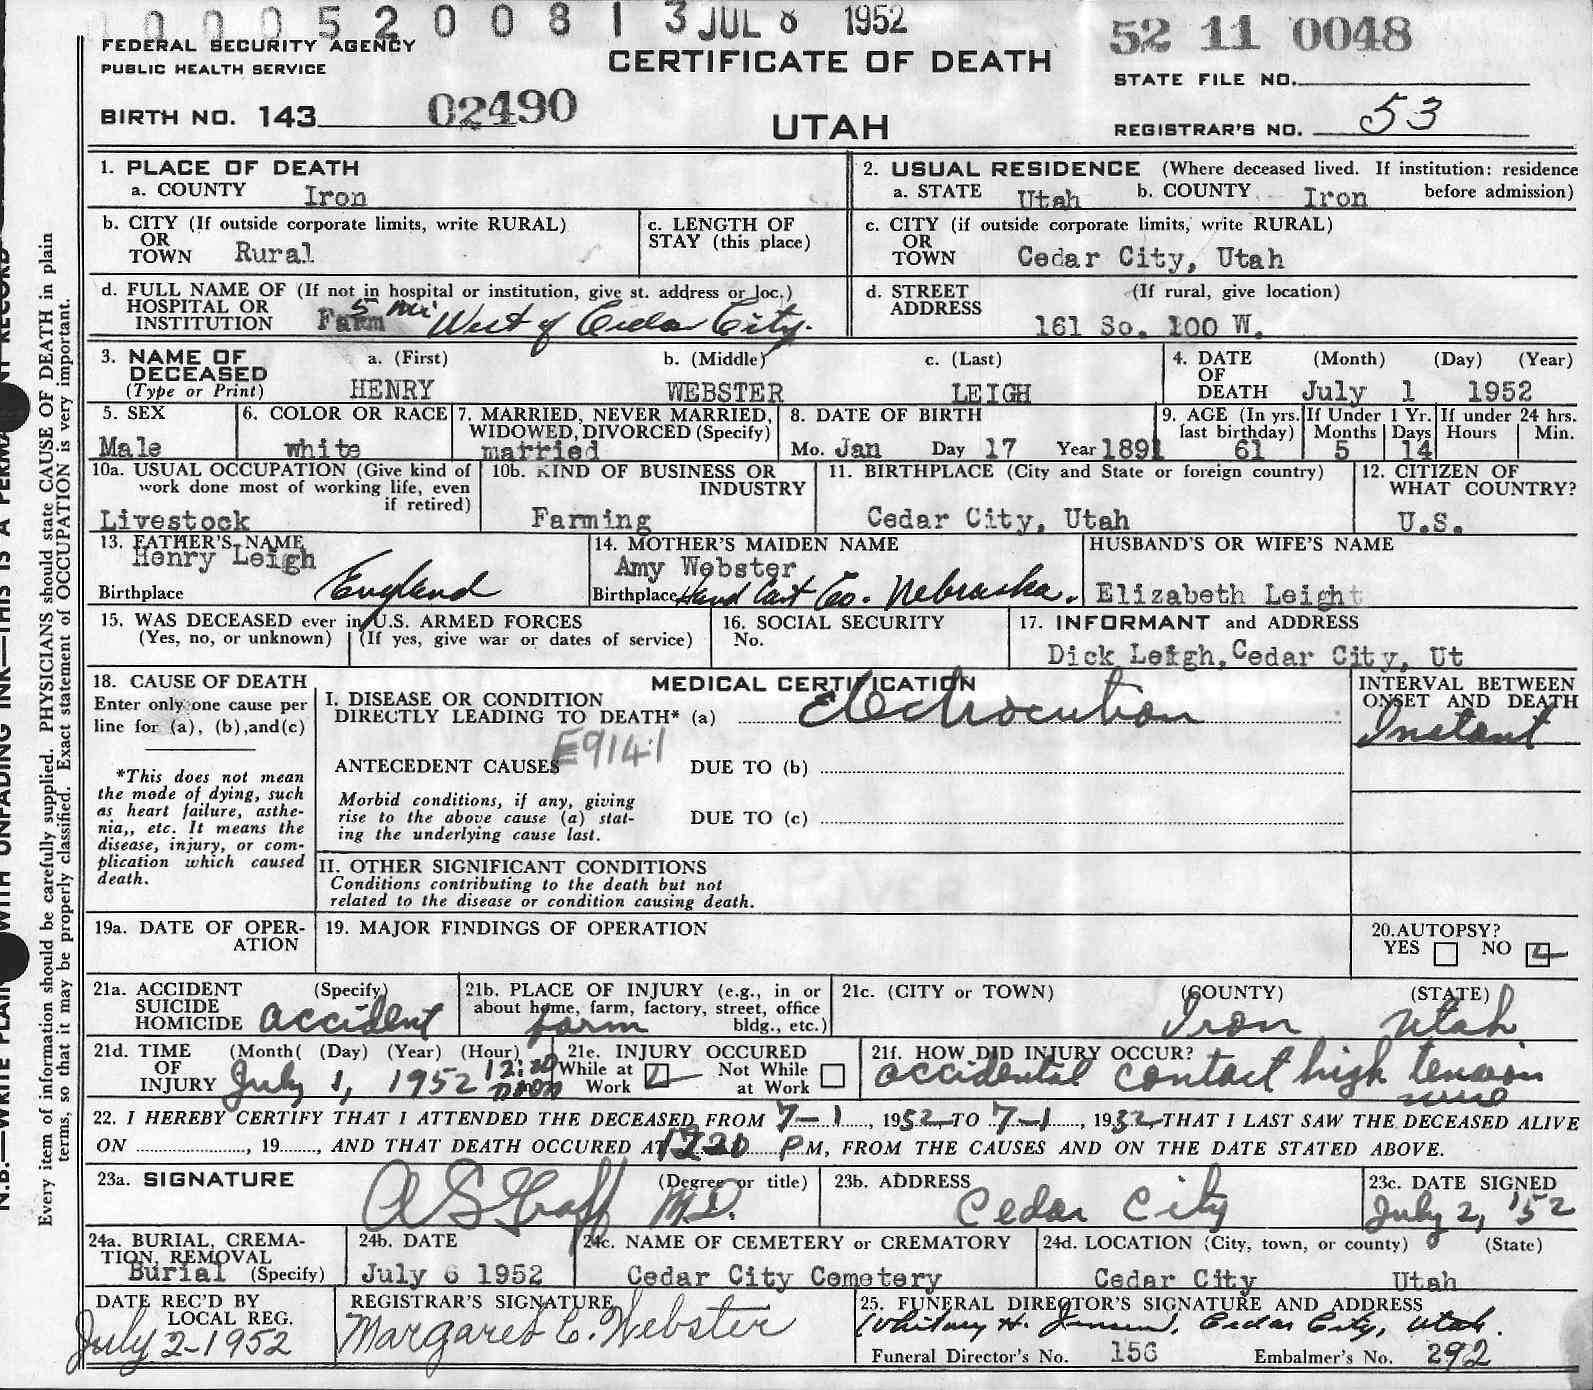 1 0 0 0 5 2 0 0 8 1 3 JUL 8 1952
52 11 0048
FEDERAL SECURITY AGENCY
PUBLIC HEALTH SERVICE
CERTIFICATE OF DEATH
STATE FILE NO.
BIRTH NO. 143 02490
UTAH
REGISTRAR'S NO. 53
1. PLACE OF DEATH
a. COUNTY Iron
2. USUAL RESIDENCE (Where deceased lived. If institution: residence
a. STATE Utah b. COUNTY Iron before admission)
b. CITY (If outside corporate limits, write RURAL)
OR
TOWN Rural
c. LENGTH OF
STAY (this place)
c. CITY (if outside corporate limits, write RURAL)
OR
TOWN Cedar City, Utah
d. FULL NAME OF (If not in hospital or institution, give st. address or loc.)
HOSPITAL OR
INSTITUTION Farm 5 mi West of Cedar City.
d. STREET (If rural, give location)
ADDRESS
161 So. 100 W.
3. NAME OF
DECEASED
(Type or Print)
a. (First) b. (Middle) c. (Last)
HENRY WEBSTER LEIGH
4. DATE (Month) (Day) (Year)
OF
DEATH July 1 1952
5. SEX
Male
6. COLOR OR RACE
white
7. MARRIED, NEVER MARRIED,
WIDOWED, DIVORCED (Specify)
married
8. DATE OF BIRTH
Mo. Jan Day 17 Year 1891
9. AGE (In yrs.
last birthday)
61
If Under 1 Yr.
Months Days
5 14
If under 24 hrs.
Hours Min.
10a. USUAL OCCUPATION (Give kind of
work done most of working life, even
if retired)
Livestock
10b. KIND OF BUSINESS OR
INDUSTRY
Farming
11. BIRTHPLACE (City and State or foreign country)
Cedar City, Utah
12. CITIZEN OF
WHAT COUNTRY?
U.S.
13. FATHER'S NAME
Henry Leigh
Birthplace England
14. MOTHER'S MAIDEN NAME
Amy Webster
Birthplace Hand Cart Co. Nebraska.
HUSBAND'S OR WIFE'S NAME
Elizabeth Leight
15. WAS DECEASED ever in U.S. ARMED FORCES
(Yes, no, or unknown) (If yes, give war or dates of service)
16. SOCIAL SECURITY
No.
17. INFORMANT and ADDRESS
Dick Leigh, Cedar City, Ut
18. CAUSE OF DEATH
Enter only one cause per
line for (a), (b), and (c)
*This does not mean
the mode of dying, such
as heart failure, asthe-
nia,, etc. It means the
disease, injury, or com-
plication which caused
death.
MEDICAL CERTIFICATION
I. DISEASE OR CONDITION
DIRECTLY LEADING TO DEATH* (a) Electrocution
E914.1
ANTECEDENT CAUSES DUE TO (b)
Morbid conditions, if any, giving
rise to the above cause (a) stat-
ing the underlying cause last.
DUE TO (c)
INTERVAL BETWEEN
ONSET AND DEATH
Instant
II. OTHER SIGNIFICANT CONDITIONS
Conditions contributing to the death but not
related to the disease or condition causing death.
19a. DATE OF OPER-
ATION
19. MAJOR FINDINGS OF OPERATION
20. AUTOPSY?
YES NO
21a. ACCIDENT (Specify)
SUICIDE
HOMICIDE accident
21b. PLACE OF INJURY (e.g., in or
about home, farm, factory, street, office
bldg., etc.)
farm
21c. (CITY or TOWN) (COUNTY) (STATE)
Iron Utah
21d. TIME (Month( (Day) (Year) (Hour)
OF
INJURY July 1, 1952 12:20 noon
21e. INJURY OCCURED
While at Not While
Work at Work
21f. HOW DID INJURY OCCUR?
accidental contact high tension
wire
22. I HEREBY CERTIFY THAT I ATTENDED THE DECEASED FROM 7-1, 1952 TO 7-1, 1952 THAT I LAST SAW THE DECEASED ALIVE
ON , 19 , AND THAT DEATH OCCURED AT 1220 P M, FROM THE CAUSES AND ON THE DATE STATED ABOVE.
23a. SIGNATURE (Degree or title)
A S Graff M.D.
23b. ADDRESS
Cedar City
23c. DATE SIGNED
July 2, '52
24a. BURIAL, CREMA-
TION, REMOVAL
Burial (Specify)
24b. DATE
July 6 1952
24c. NAME OF CEMETERY or CREMATORY
Cedar City Cemetery
24d. LOCATION (City, town, or county) (State)
Cedar City Utah
DATE REC'D BY
LOCAL REG.
July 2-1952
REGISTRAR'S SIGNATURE
Margaret C. Webster
25. FUNERAL DIRECTOR'S SIGNATURE AND ADDRESS
Whitney H. Jensen, Cedar City, Utah.
Funeral Director's No. 156 Embalmer's No. 292
Every item of information should be carefully supplied. PHYSICIANS should state CAUSE OF DEATH in plain
terms, so that it may be properly classified. Exact statement of OCCUPATION is very important.
WITH UNFADING INK—THIS IS A
N.B.—WRITE